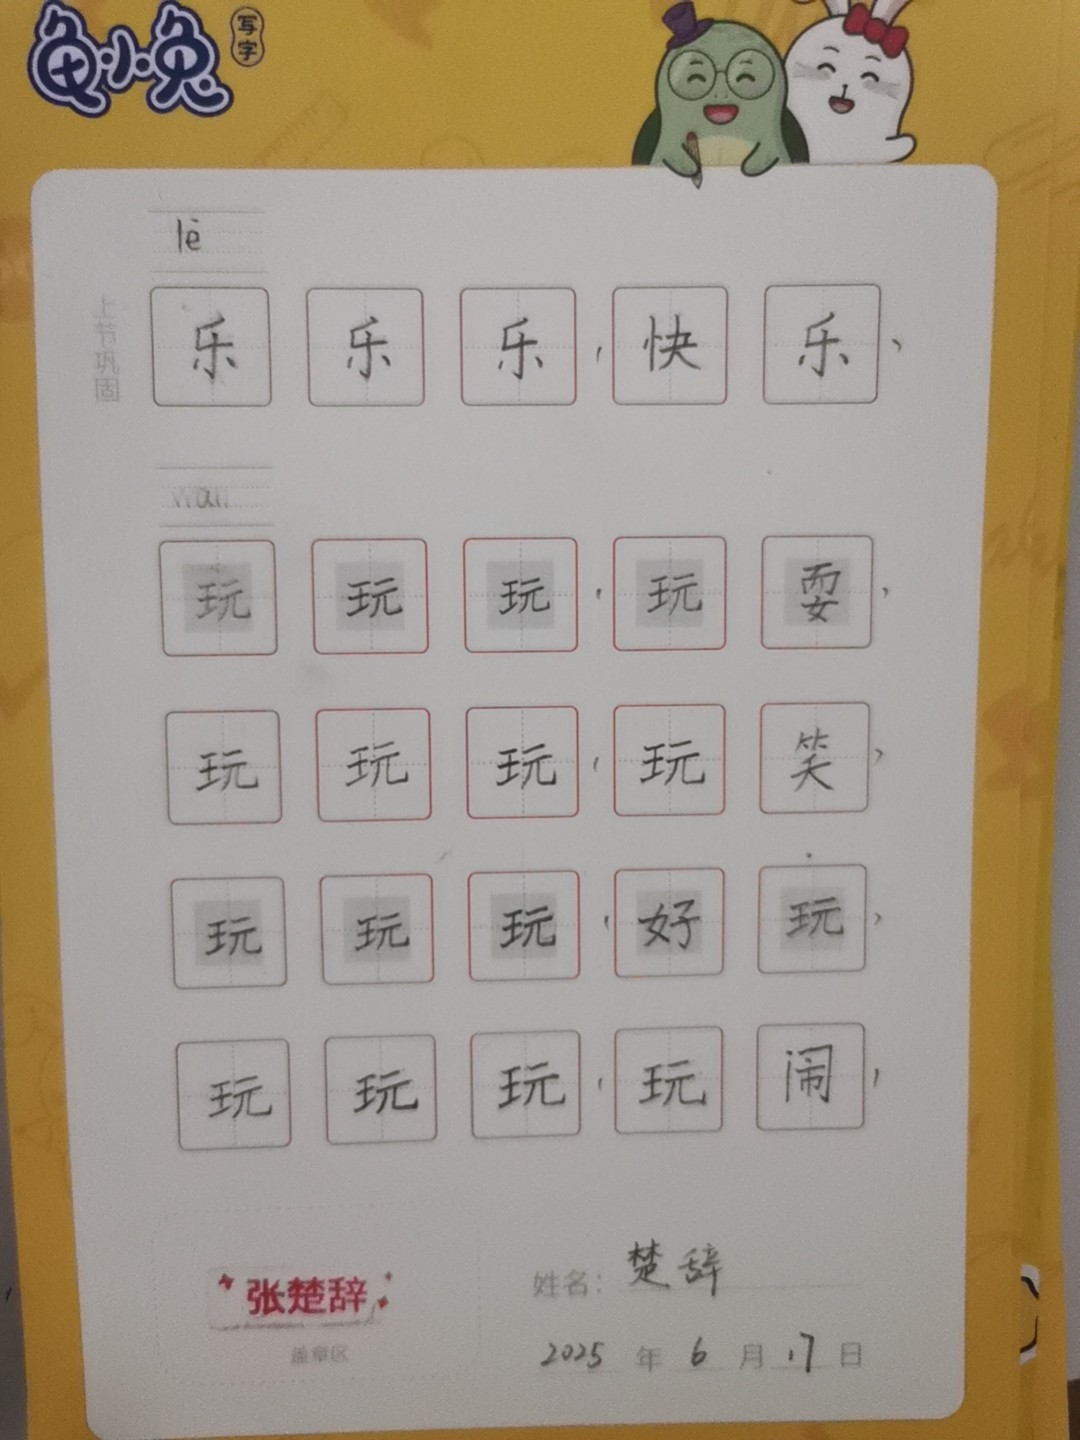 龟小兔
写字
lè
上节巩固
乐 乐 乐（快 乐）
wán
玩 玩 玩（玩 耍）
玩 玩 玩（玩 笑）
玩 玩 玩（好 玩）
玩 玩 玩（玩 闹）
张楚辞
盖章区
姓名：楚辞
2025 年 6 月 17 日